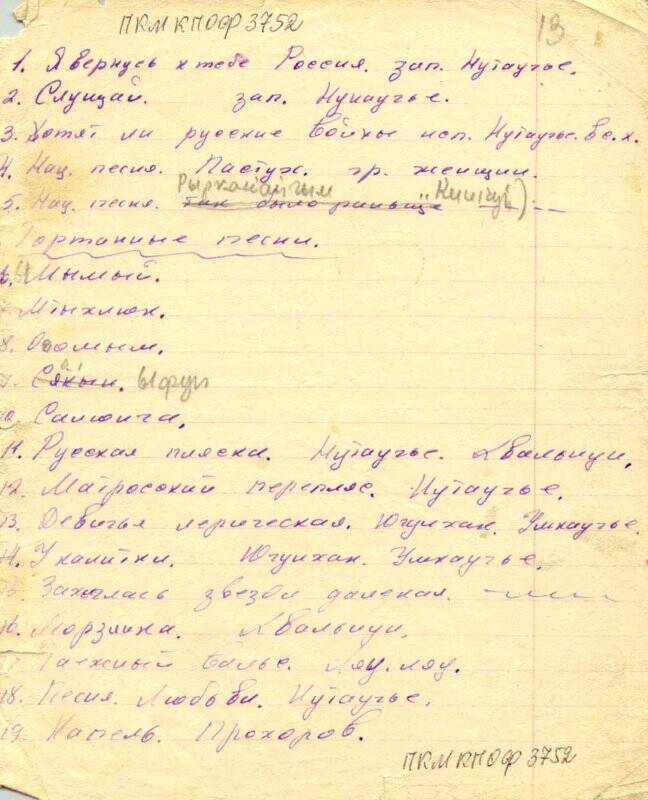 ПКМ КПОФ 3752
13
1. Я вернусь к тебе Россия. зап. Нутаугье.
2. Слушай. зап. Нутаугье.
3. Хотят ли русские войны исп. Нутаугье. в с. х.
4. Нац. песня. Пастух. гр. женщин.
5. Нац. песня. так было раньше
Гортанные песни.
6. Мымый.
7. Мтыхлюк.
8. Оомым.
9. Сякын.
10. Салювича.
11. Русская пляска. Нутаугье. Квальнуи.
12. Матросский перепляс. Нутаугье.
13. Девичья лерическая. Югунхак. Умкаугье.
14. У калитки. Югунхак. Умкаугье.
15. звезда далекая.
16. Морзянка. Квальнуи.
17 Таежный вальс. Ляу. ляу.
18. Песня Любви. Нутаугье.
19. Капель. Прохоров.
ПКМ КПОФ 3752